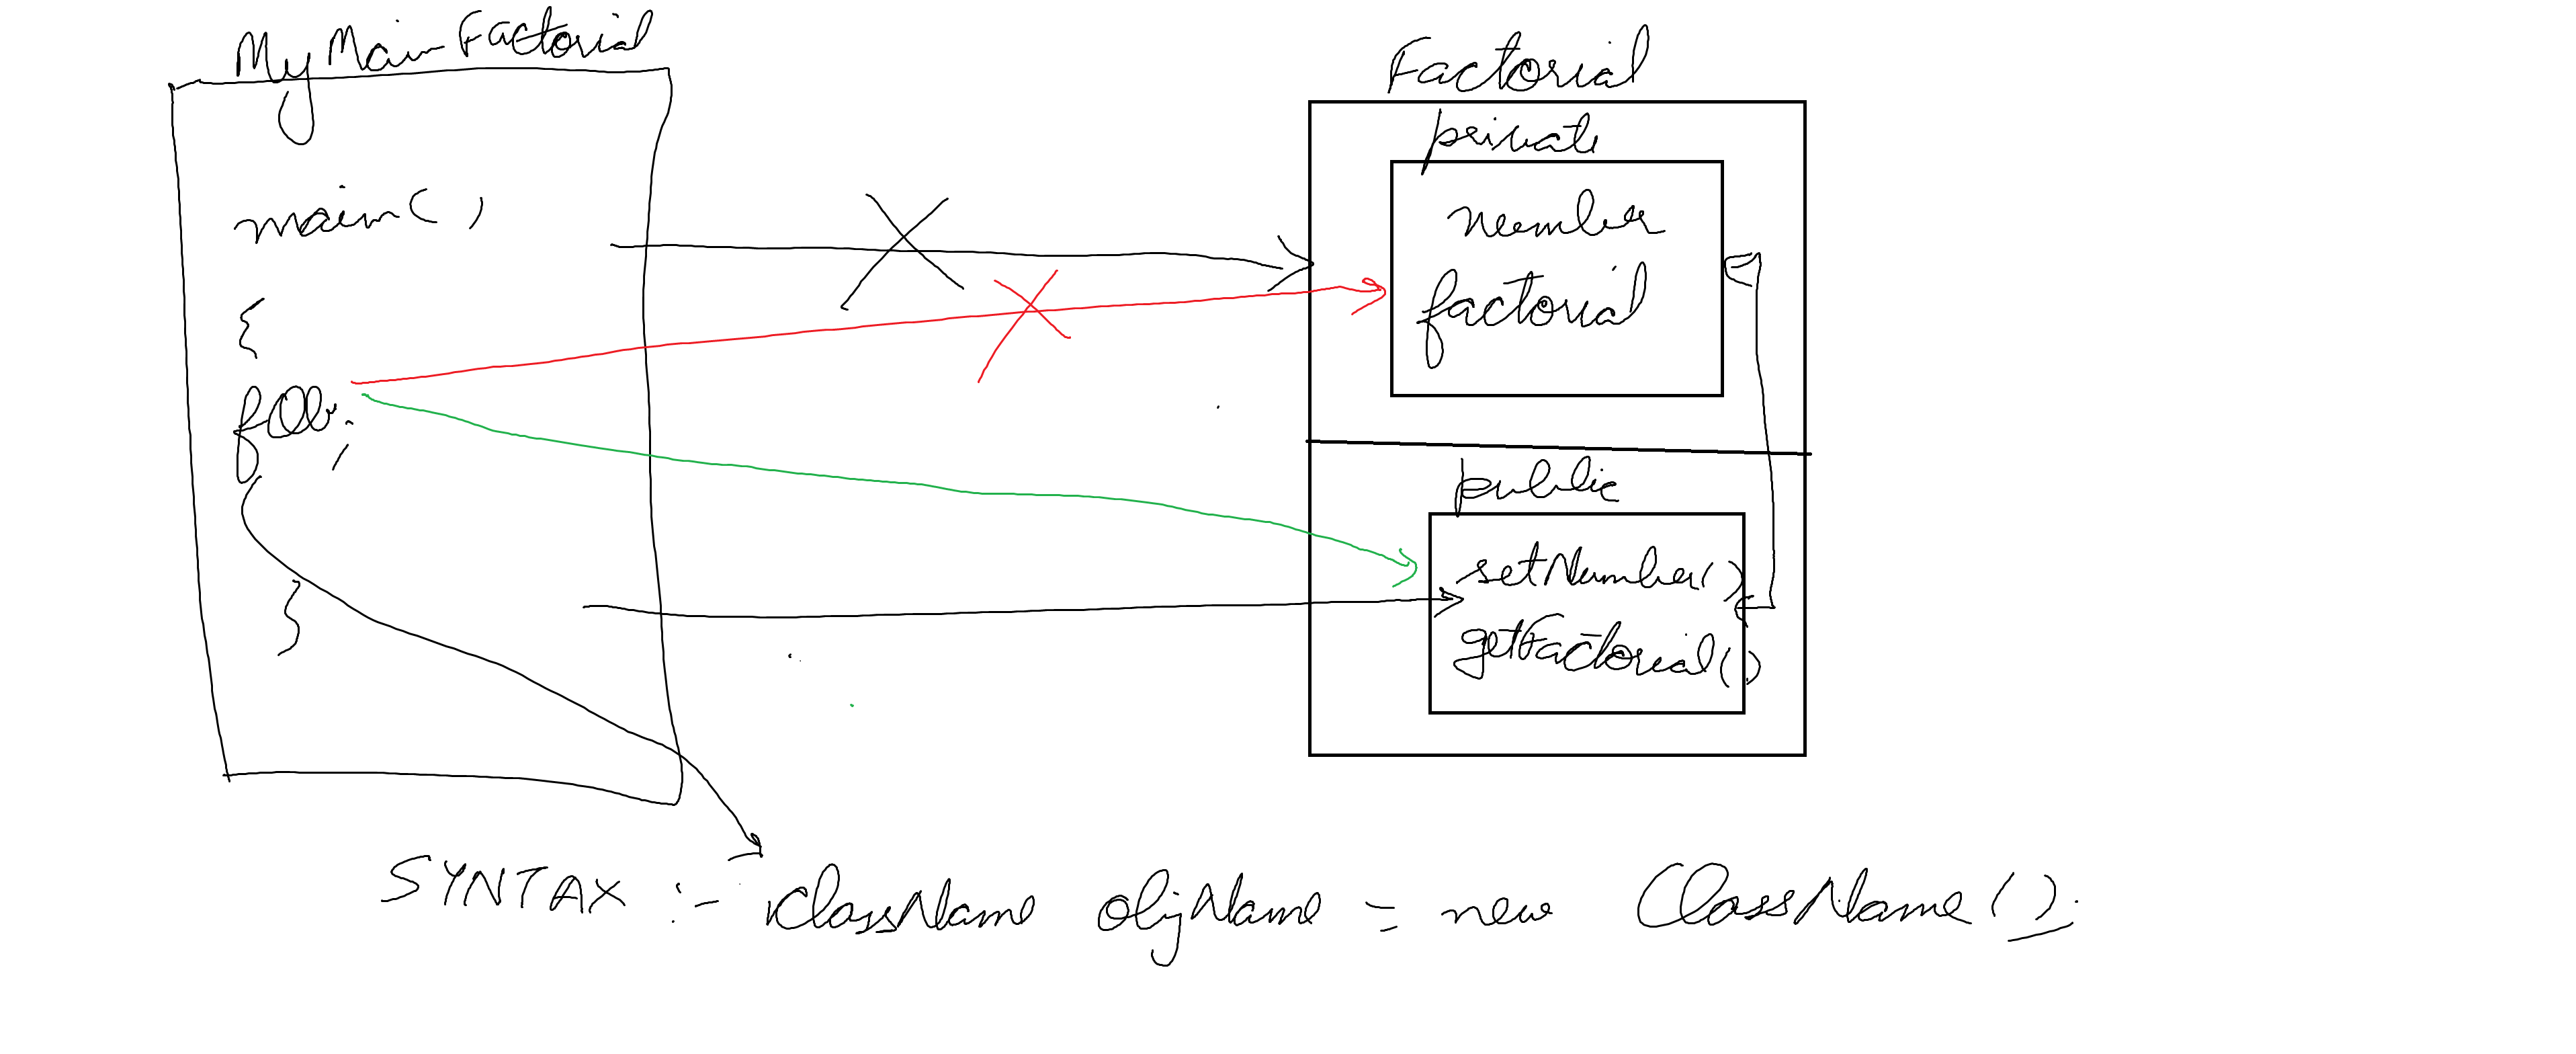 MyMainFactorial
main()
{
fOb;
}
Factorial
private
number
factorial
public
setNumber()
getFactorial()
SYNTAX :- ClassName objName = new ClassName();